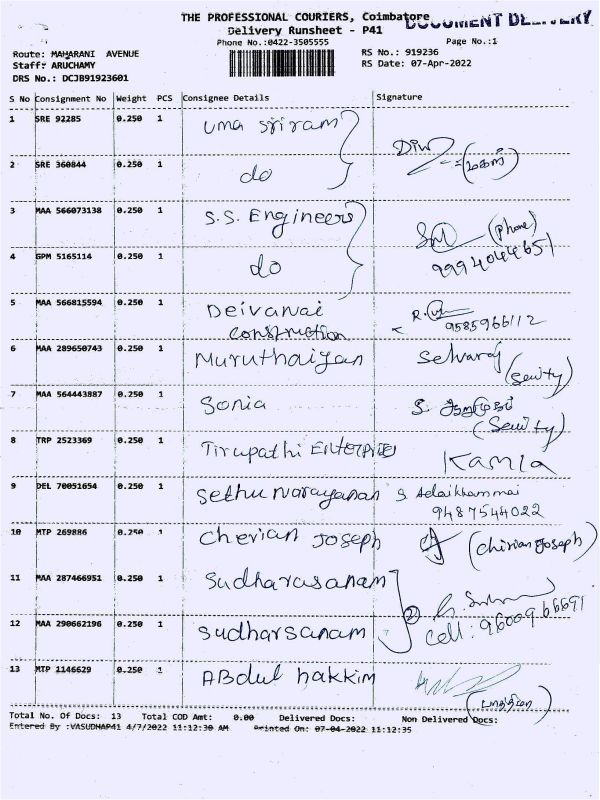 THE PROFESSIONAL COURIERS, Coimbatore
DOCUMENT DELIVERY
Delivery Runsheet - P41
Phone No.:0422-3505555
Page No.:1
Route: MAHARANI AVENUE
RS No.: 919236
Staff: ARUCHAMY
RS Date: 07-Apr-2022
DRS No.: DCJB91923601
S No Consignment No Weight PCS Consignee Details Signature
1 SRE 92285 0.250 1 Uma Sriram
2 SRE 360844 0.250 1 do
3 MAA 566073138 0.250 1 S.S. Engineers (Phone)
4 GPM 5165114 0.250 1 do 9994044651
5 MAA 566815594 0.250 1 Deivanai
construction 9585966112
6 MAA 289650743 0.250 1 Muruthaiyan Selvaraj
7 MAA 564443887 0.250 1 Sonia S. ஆறுமுகம்
8 TRP 2523369 0.250 1 Tirupathi Enterprises Kamla
9 DEL 70051654 0.250 1 Sethu Narayanan
9487544022
10 MTP 269886 0.250 1 Cherian Joseph (Chirian Joseph)
11 MAA 287466951 0.250 1 Sudharasanam
12 MAA 290662196 0.250 1 Sudharsanam 2 Cell: 9600966691
13 MTP 1146629 0.250 1 Abdul hakkim
Total No. Of Docs: 13 Total COD Amt: 0.00 Delivered Docs: Non Delivered Docs:
Entered By :VASUDHAP41 4/7/2022 11:12:30 AM Printed On: 07-04-2022 11:12:35